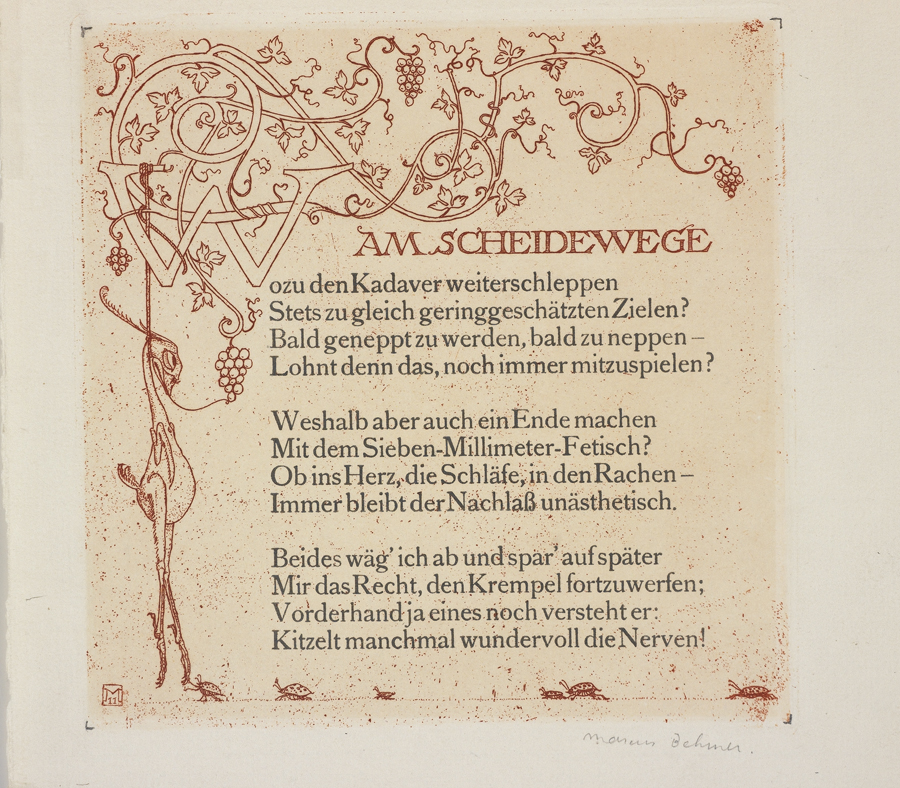 AM SCHEIDEWEGE
Wozu den Kadaver weiterschleppen
Stets zu gleich geringgeschätzten Zielen?
Bald geneppt zu werden, bald zu neppen –
Lohnt denn das, noch immer mitzuspielen?
Weshalb aber auch ein Ende machen
Mit dem Sieben-Millimeter-Fetisch?
Ob ins Herz, die Schläfe, in den Rachen –
Immer bleibt der Nachlaß unästhetisch.
Beides wäg' ich ab und spar' auf später
Mir das Recht, den Krempel fortzuwerfen;
Vorderhand ja eines noch versteht er:
Kitzelt manchmal wundervoll die Nerven!
M
11
Marcus Behmer.